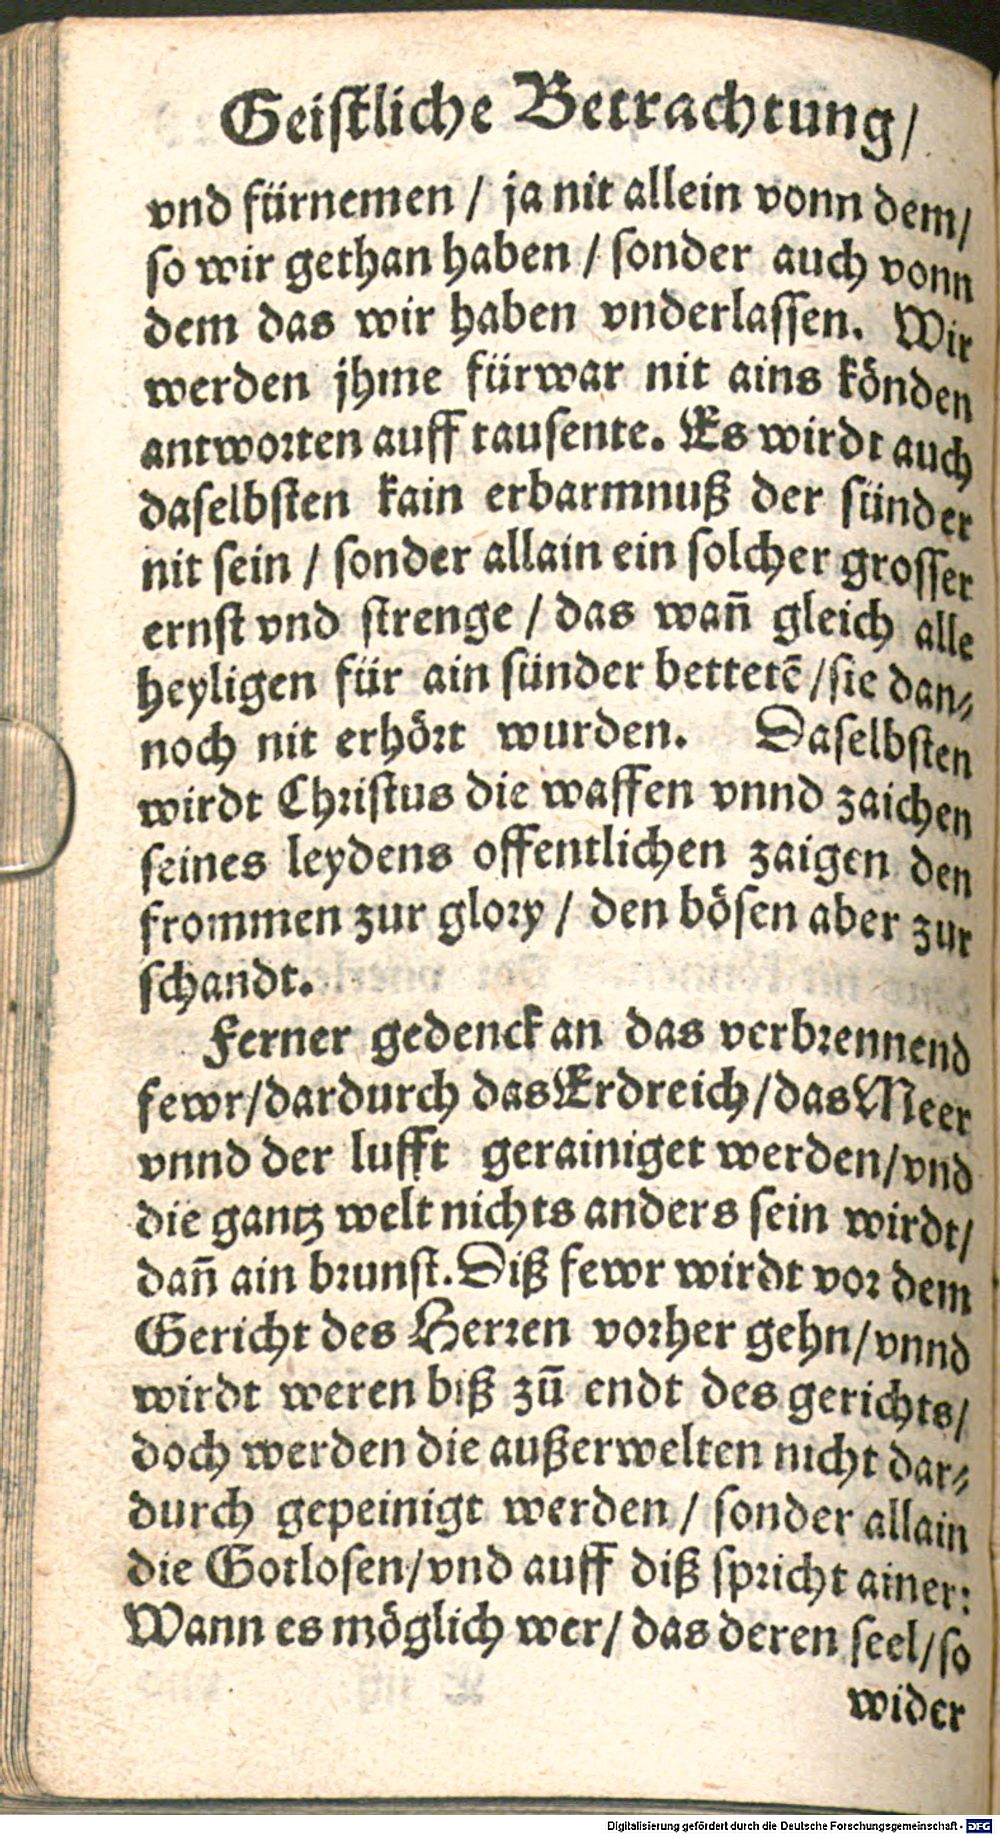 Geistliche Betrachtung/
vnd fürnemen / ja nit allein vonn dem/
so wir gethan haben / sonder auch vonn
dem das wir haben vnderlassen. Wir
werden jhme fürwar nit ains könden
antworten auff tausente. Es wirdt auch
daselbsten kain erbarmnuß der sünder
nit sein / sonder allain ein solcher grosser
ernst vnd strenge / das wañ gleich alle
heyligen für ain sünder bettetē /sie dan⸗
noch nit erhört wurden. Daselbsten
wirdt Christus die waffen vnnd zaichen
seines leydens offentlichen zaigen den
frommen zur glory / den bösen aber zur
schandt.
Ferner gedenck an das verbrennend
fewr/dardurch das Erdreich/das Meer
vnnd der lufft gerainiget werden/vnd
die gantz welt nichts anders sein wirdt/
dañ ain brunst. Diß fewr wirdt vor dem
Gericht des Herren vorher gehn/vnnd
wirdt weren biß zū endt des gerichts/
doch werden die außerwelten nicht dar⸗
durch gepeinigt werden / sonder allain
die Gotlosen/vnd auff diß spricht ainer:
Wann es möglich wer/ das deren seel/so
wider
Digitalisierung gefördert durch die Deutsche Forschungsgemeinschaft - DFG